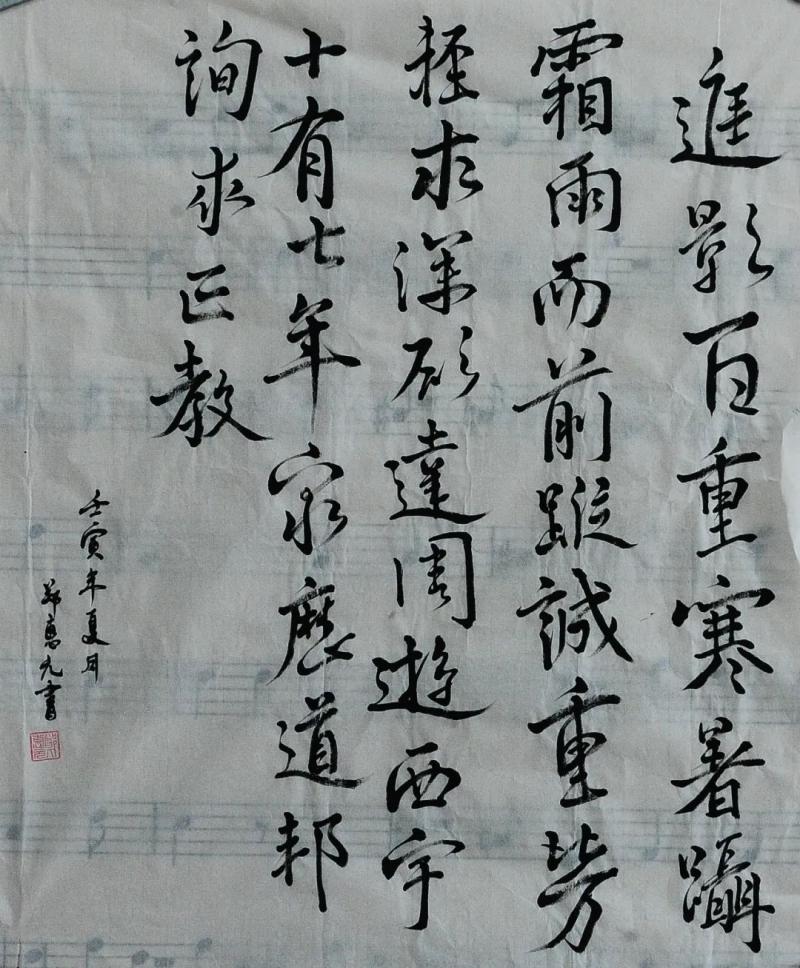 進影百重寒暑躡
霜雨而前蹤誠重勞
輕求深願達周遊西宇
十有七年窮歷道邦
詢求正教
壬寅年夏月
鄭惠九書